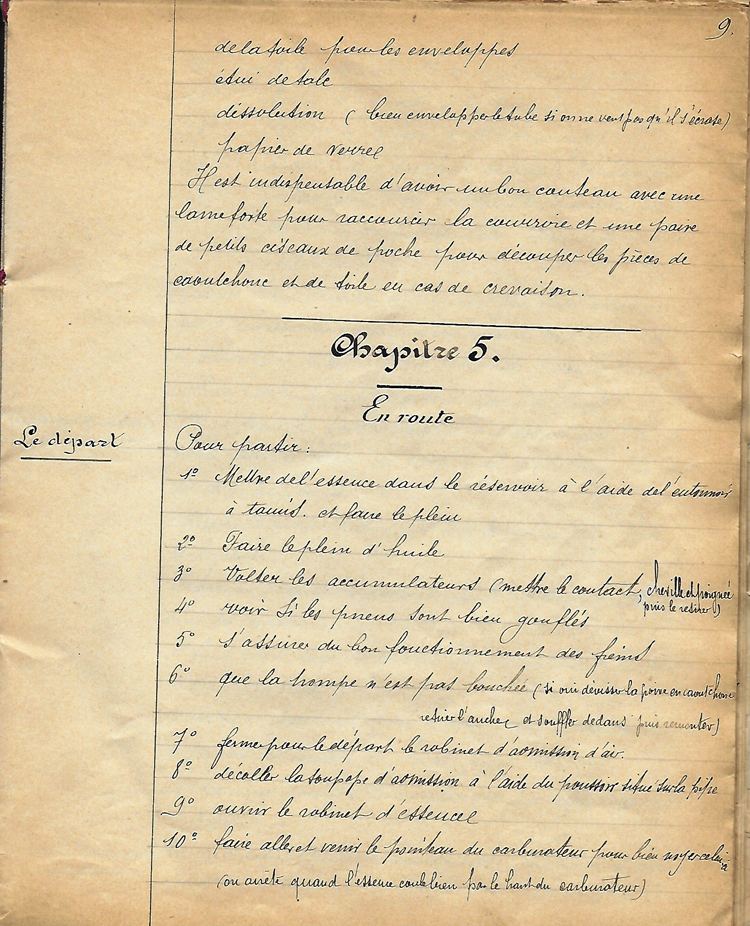 9.
de la toile pour les enveloppes
étui de talc
dissolution (bien envelopper le tube si on ne veut pas qu'il s'écrase)
papier de verre
Il est indispensable d'avoir un bon couteau avec une
lame forte pour raccourcir la courroie et une paire
de petits ciseaux de poche pour découper les pièces de
caoutchouc et de toile en cas de crevaison.
Chapitre 5.
En route
Le départ
Pour partir :
1º Mettre de l'essence dans le réservoir à l'aide de l'entonnoir
à tamis. et faire le plein
2º Faire le plein d'huile
3º Volter les accumulateurs (mettre le contact, cheville et poignée
puis le retirer)
4º voir si les pneus sont bien gonflés
5º s'assurer du bon fonctionnement des freins
6º que la trompe n'est pas bouchée (si oui dévisser la poire en caoutchouc
retirer l'anche et souffler dedans puis remonter)
7º fermer pour le départ le robinet d'admission d'air.
8º décoller la soupape d'admission à l'aide du poussoir situé sur la pipe
9º ouvrir le robinet d'essence
10º faire aller et venir le pointeau du carburateur pour bien noyer celui-ci
(on arrête quand l'essence coule bien par le haut du carburateur)